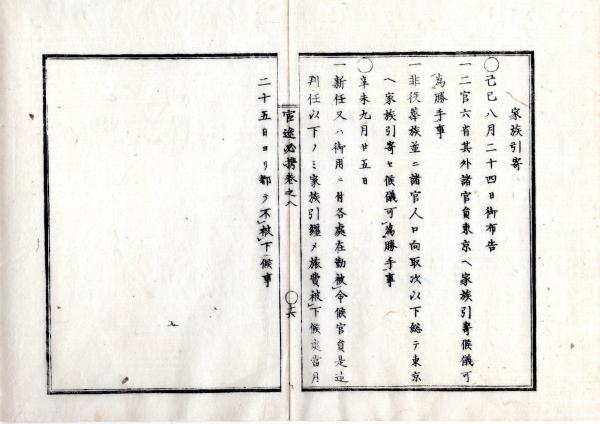 家族引寄
〇己巳八月二十四日御布告
一二官六省其外諸官員東京ヘ家族引寄候儀可
為勝手事
一非役華族並ニ諸官人口向取次以下総テ東京
ヘ家族引寄セ候儀可為勝手事
〇辛未九月廿五日
一新任又ハ御用ニ付各處在勤被命候官員是迄
判任以下ノミ家族引纒メ旅費被下候處當月
官途必携巻之八
〇十六
二十五日ヨリ都テ不被下候事